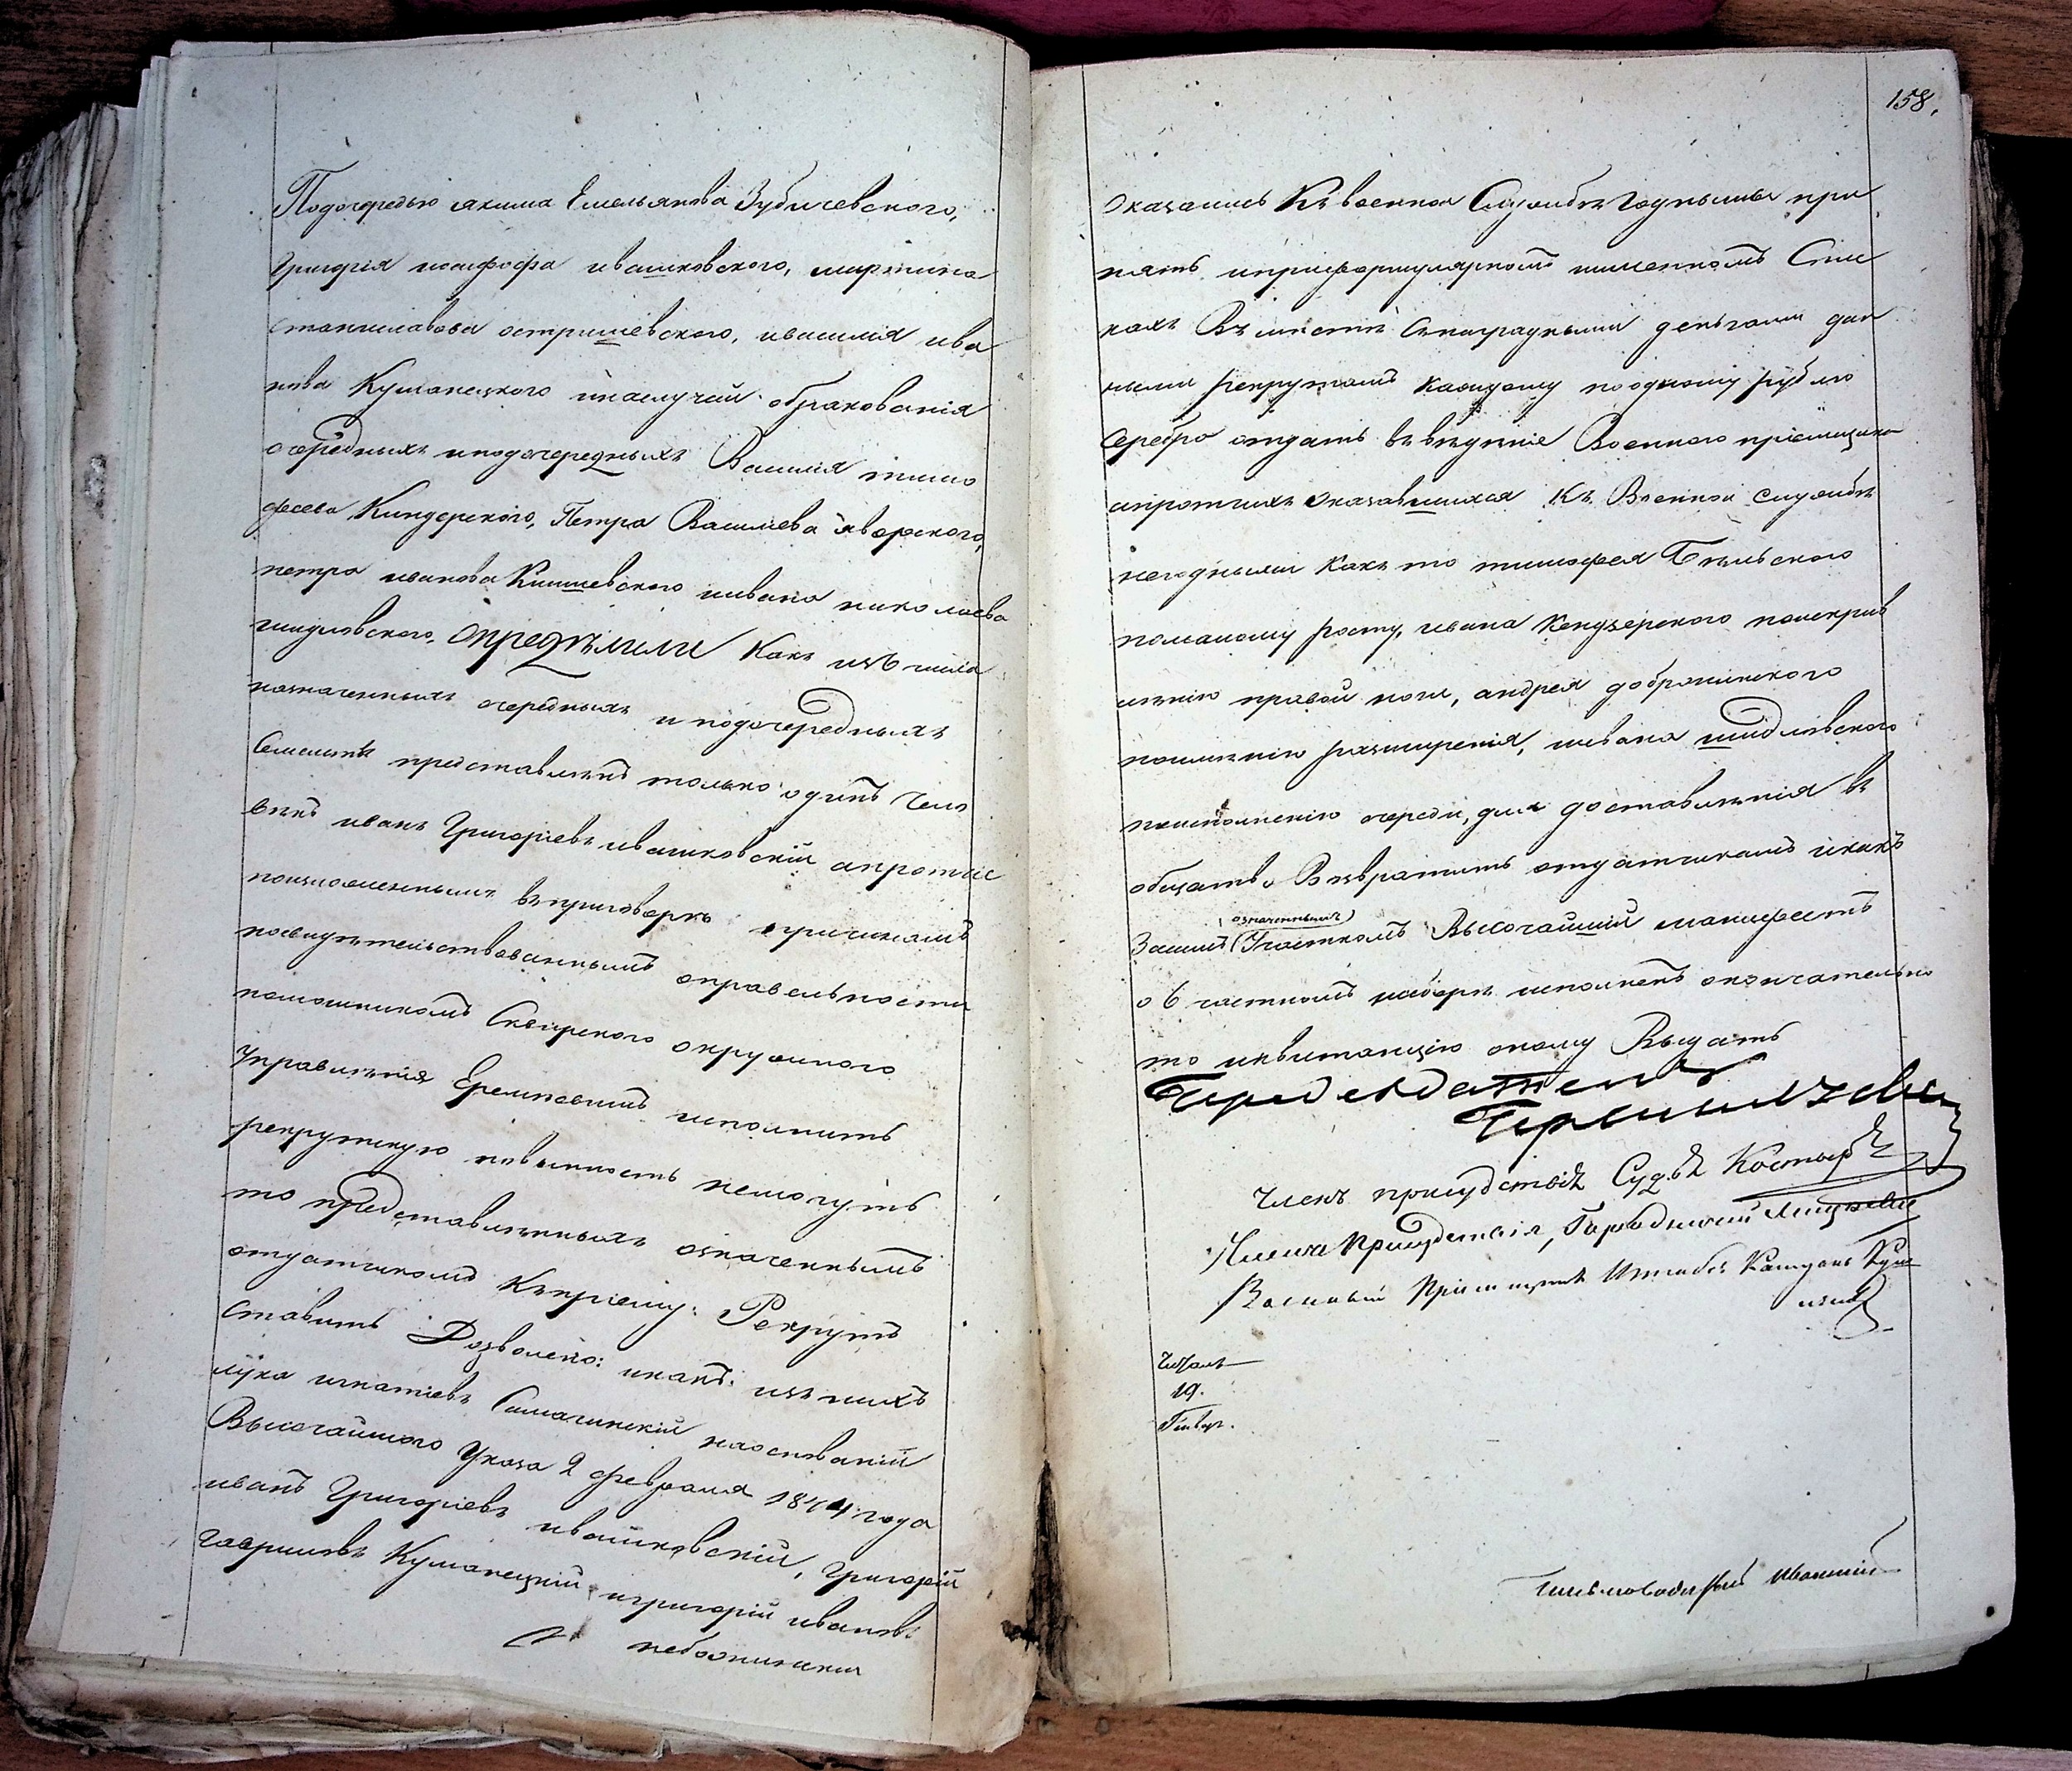 Подочередью якима Емельянова Зубичевского,
Григорія иосифова ивашковского, мартина
станиславова остришевского, ивасилія ива
нова Куманецкого инаслучай обракованія
очередныхъ иподочередныхъ Василія тимо
феева Киндерского, Петра Васильева яворского,
петра иванова Кишшевского иивана николаева
шидловского, Опредѣлили Какъ изъ числа
назначенныхъ очередныхъ и подочередныхъ
Семействъ представленъ только одинъ чело
векъ иванъ Григоріевъ ивашковскій апротчіе
поизложеннымъ вприговоръ причинамъ
посвидѣтельствованнымъ оправельности
помощникомъ Сквирского окружного
Управленія Ереминымъ исполнить
рекрутскую повинность немогутъ
то представленныхъ означеннымъ
отдатчикомъ Къпріему: Рекрутъ
ставить Дозволено: икакъ изъ нихъ
лука игнатіевъ Симашкинскій наоснованіи
Высочайшаго Указа 2 февраля 1844 года
иванъ Григоріевъ ивашковскій, Григорій
гавриловъ Куманецкій игригорій ивановъ
небожинскій
158.
оказались Къ военной Службѣ Годными при
нять иприформулярномъ именномъ Спис
кахъ Въмѣстѣ Снаградными деньгами дан
ными рекрутамъ каждому поодному рублю
серебро отдать въ вѣденіе Военного пріемщика
апротчихъ оказавшихся Къ Военной службѣ
негодными Какъ то тимофея Бѣльского
помалому росту, ивана Кендзерского поискрив
ленію правой ноги, андрея добржинского
поимѣнію расширенія, иивана шидловского
поисполненію очереди, для доставленія въ
общество Возвратить отдатчикамъ икакъ
(означеннымъ)
Засимъ (Участкомъ Высочайшій манифестъ
о 6 частномъ наборѣ исполненъ окончательно
то иквитанцію оному Выдать
Председатель
Членъ присудствія Судья Костыр
Членъ Присудствія, Городничій
Военный Пріемщикъ Штабсъ Капитанъ
Читалъ
19.
Письмоводитель Иваницкій